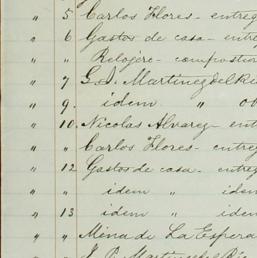 " 5 Carlos Flores - entreg
" 6 Gastos de casa - entre
" " Relojero - compostur
" 7 G. S. Martinez del Rio
" 9. idem "
" 10. Nicolas Alvarez - ent
" " Carlos Flores - entreg
" 12 Gastos de casa - entreg
" " idem " idem
" 13 idem " idem
" " Mina de La Espera
" " Martinez del Rio